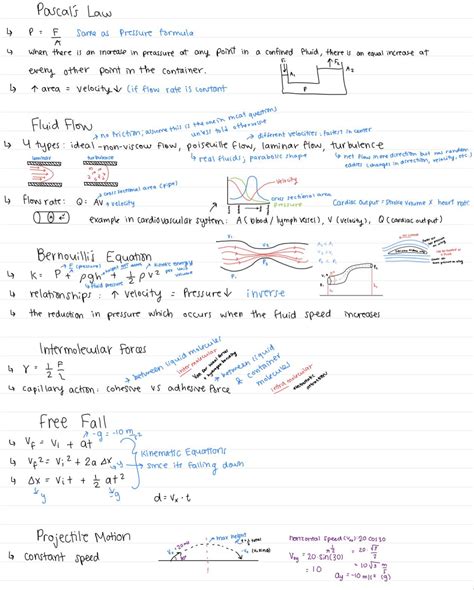 Pascal's Law
↳ P = F/A same as Pressure formula
↳ when there is an increase in pressure at any point in a confined fluid, there is an equal increase at
every other point in the container.
F₁ A₁ F₂ A₂
↳ ↑ area = velocity ↓ (if flow rate is constant)
Fluid Flow
no friction; assume this is the main mcat questions
unless told otherwise
different velocities: fastest in center
↳ 4 types: ideal-non-viscous flow, poiseuille flow, laminar flow, turbulence
real fluids; parabolic shape
net flow in one direction but has random
eddies (changes in direction, velocity, etc)
laminar turbulence
velocity
cross sectional area
Pressure
cross sectional area (pipe)
↳ Flow rate: Q = AV velocity
Cardiac output = Stroke volume x heart rate
example in cardiovascular system: A (blood / lymph vessel), V (velocity), Q (cardiac output)
Bernouilli's Equation
↳ K = P + ρgh + ½ρv²
↳ relationships: ↑ velocity = Pressure ↓ inverse
↳ the reduction in pressure which occurs when the fluid speed increases
Intermolecular Forces
↳ γ = ½ F/L
between liquid molecules
intermolecular
between liquid & container molecules
intramolecular
↳ capillary action: cohesive vs adhesive force
Free Fall
-g = -10 m/s²
↳ Vf = Vi + at
↳ Vf² = Vi² + 2a Δx
y
Kinematic Equations
since its falling down
↳ Δx = Vit + ½ at²
y g
d = Vx · t
Projectile Motion
↳ constant speed
max height
horizontal speed (Vx) = 20 cos 30
V₀y = 20·sin(30)
= 10
ay = -10 m/s² (g)